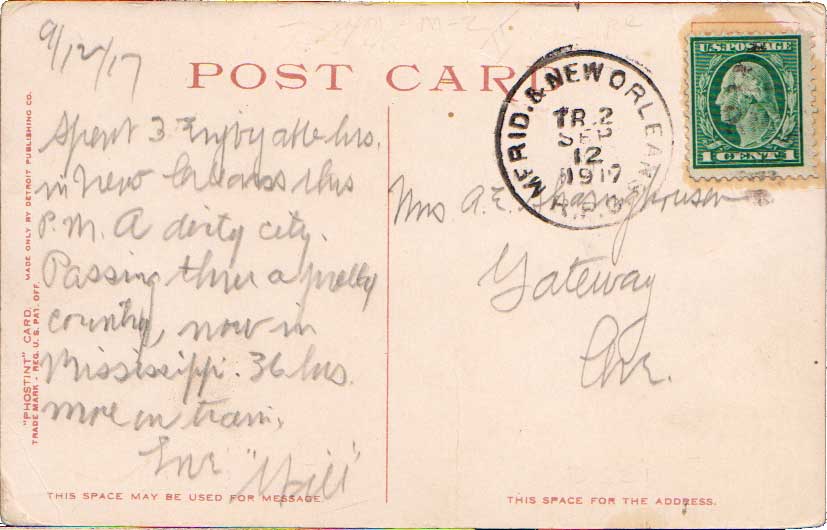 9/12/17
POST CARD
Spent 3 Enjoyable hrs.
in New Orleans this
P.M. A dirty city.
Passing thru a pretty
country, now in
Mississippi. 36 hrs.
more on train.
"Will"
THIS SPACE MAY BE USED FOR MESSAGE.
"PHOSTINT" CARD. MADE ONLY BY DETROIT PUBLISHING CO.
TRADE MARK - REG. U. S. PAT. OFF.
MERID. & NEW ORLEANS
TR. 2
SEP
12
1917
R.P.O.
U.S. POSTAGE
1 CENT 1
Mrs A.E.
Gateway
Ore.
THIS SPACE IS FOR THE ADDRESS.